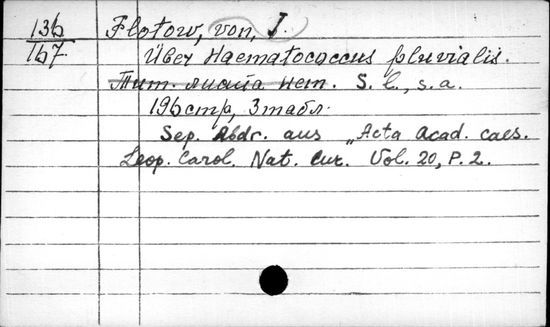 136
167
Flotow, von, J.
Über Haematococcus pluvialis.
Тит. листа нет. S. l., s. a.
196 стр, 3 табл.
Sep. Abdr. aus „Acta Acad. caes.
Leop. Carol. Nat. Cur. Vol. 20, P. 2.